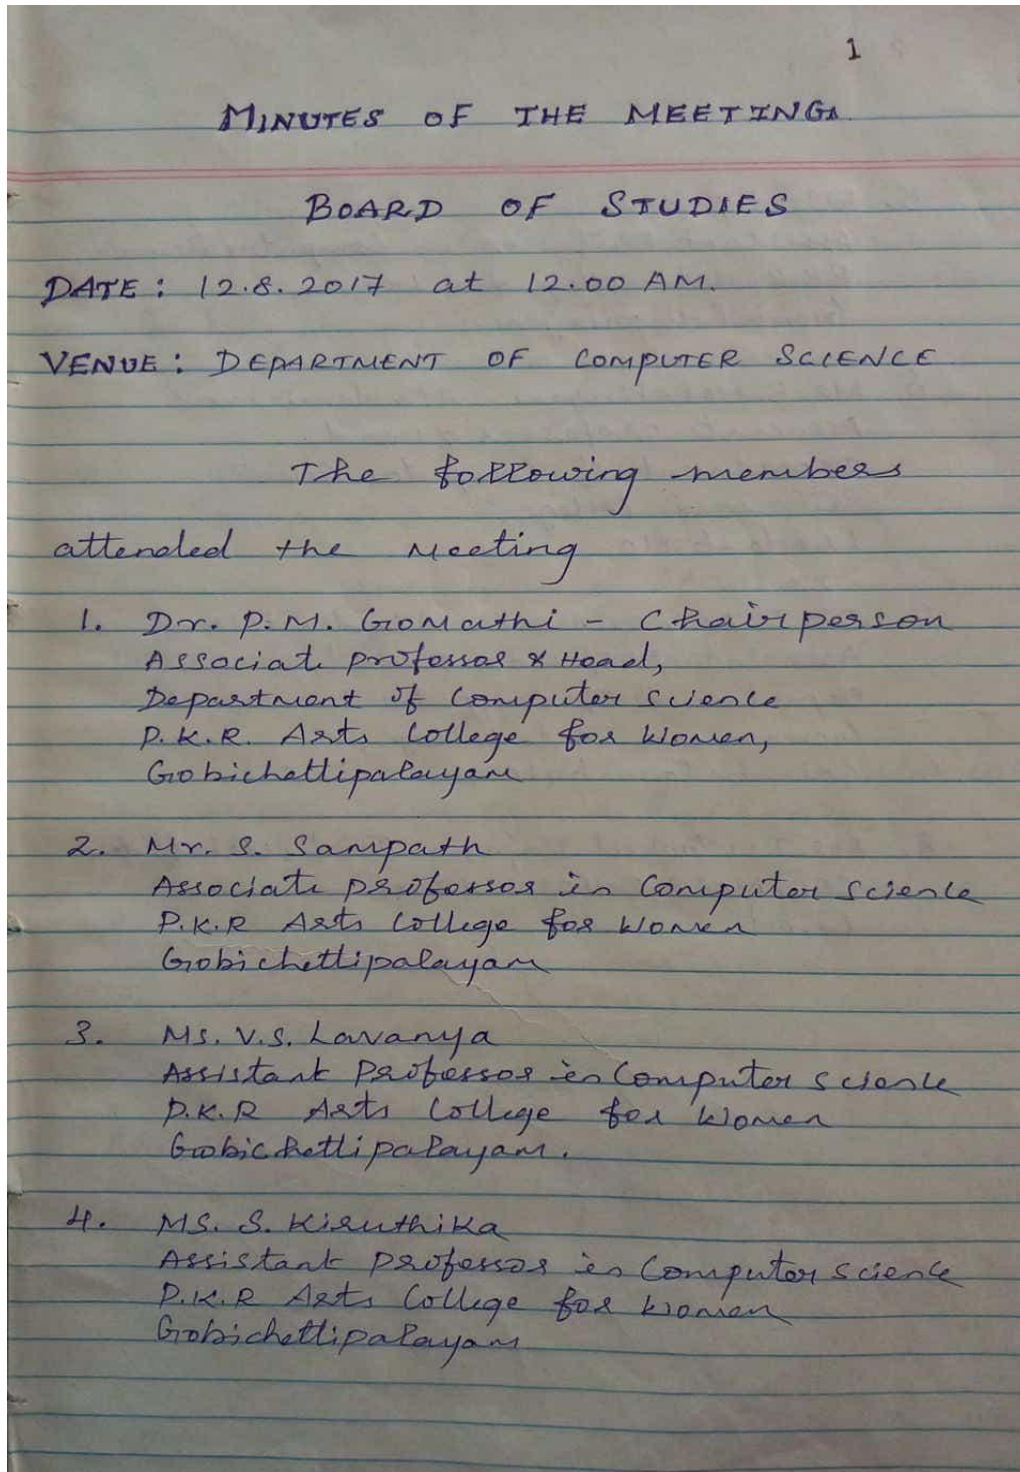 1
MINUTES OF THE MEETING.
BOARD OF STUDIES
DATE : 12.8.2017 at 12.00 AM.
VENUE : DEPARTMENT OF COMPUTER SCIENCE
The following members
attended the Meeting
1. Dr. P.M. Gomathi - Chairperson
Associate professor & Head,
Department of Computer Science
P.K.R. Arts College for Women,
Gobichettipalayam
2. Mr. S. Sampath
Associate professor in Computer Science
P.K.R Arts College for Women
Gobichettipalayam
3. Ms. V.S. Lavanya
Assistant Professor in Computer Science
P.K.R Arts College for Women
Gobichettipalayam.
4. MS. S. Kiruthika
Assistant Professor in Computer Science
P.K.R Arts College for Women
Gobichettipalayam